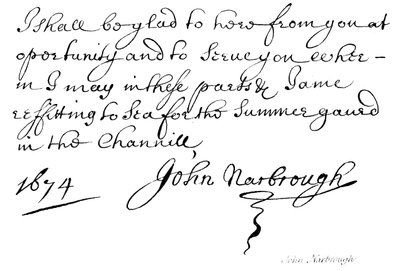 I shall be glad to here from you at
oportunity and to serue you wher -
in I may in these parts & I ame
reffitting to Sea for the Summer gaurd
in the Channill,
1674 John Narbrough
John Narbrough